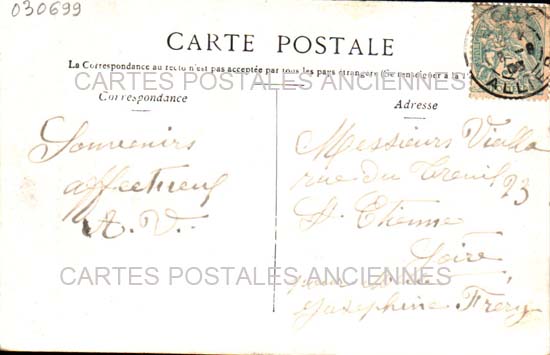 030699
CARTE POSTALE
La Correspondance au recto n'est pas acceptée par tous les pays étrangers (Se renseigner à la
CARTES POSTALES ANCIENNES
Correspondance
Adresse
Souvenirs
affectueux
A. V.
Messieurs
rue du Treuil 23
St Etienne
Loire
pour
Joséphine Frery
CARTES POSTALES ANCIENNES
ALLIER